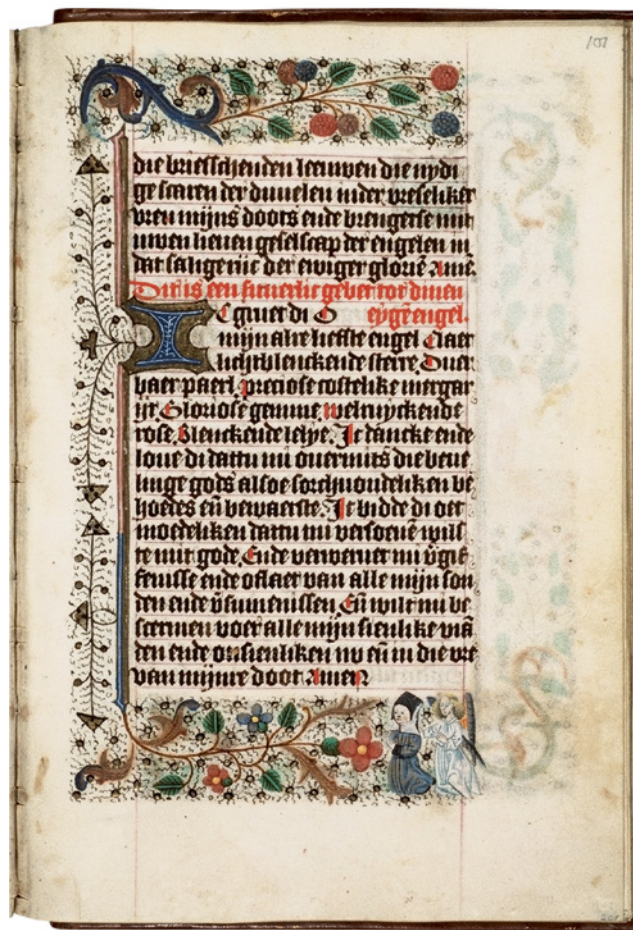 die briesschenden leeuwen die nydi
ge scaren der duuelen in der vreseliker
vren mijns doots ende brenget se mit
uwen lieuen geselscap der engelen in
dat salige rijc der ewiger glorie Amē
Dit is een suuerlic gebet tot dinen
Ic gruet di O eygē engel.
mijn alre liefste engel Claer
licht blenckende sterre. Duer
baer paerl. preciose costelike mergar
ijt. Gloriose gemme welruyckende
rose. Blenckende lelye. Ic dancke ende
loue di dattu mi ouermits die beue
linge gods alsoe sorchuoudelik en be
hoedes eñ bewaerste. Ic bidde di oet
moedeliken dattu mi versoenē wils
te mit gode. Ende verweruet mi v̄gif
fenisse ende oflaet van alle mijn son
den ende v̄sumenissen. Eñ wilt mi be
scermen voer alle mijn sienlike viā
den ende onsienliken nv eñ in die vre
van mijnre doot. Amen